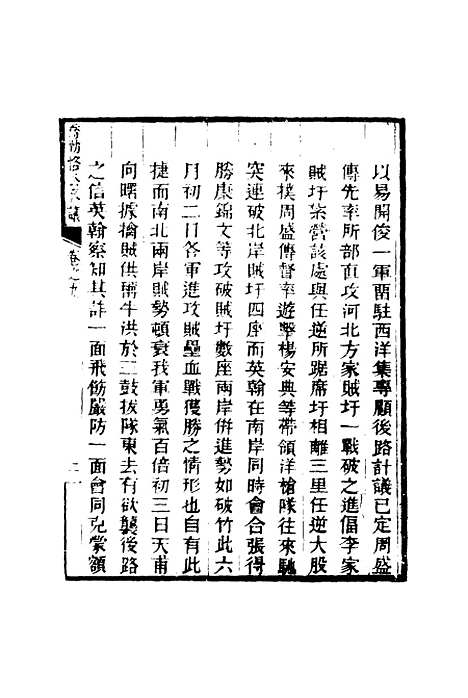 以易開俊一軍畱駐西洋集專顧後路計議已定周盛
傳先率所部直攻河北方家賊圩一戰破之進偪李家
賊圩柴營該處與任逆所踞席圩相離三里任逆大股
來撲周盛傳督率遊擊楊安典等帶領洋槍隊往來馳
突連破北岸賊圩四座而英翰在南岸同時會合張得
勝康錦文等攻破賊圩數座兩岸併進勢如破竹此六
月初二日各軍進攻賊壘血戰獲勝之情形也自有此
捷而南北兩岸賊勢頓衰我軍勇氣百倍初三日天甫
向曙據擒賊供稱牛洪於二鼓拔隊東去有欲襲後路
之信英翰察知其詐一面飛飭嚴防一面會同克蒙額